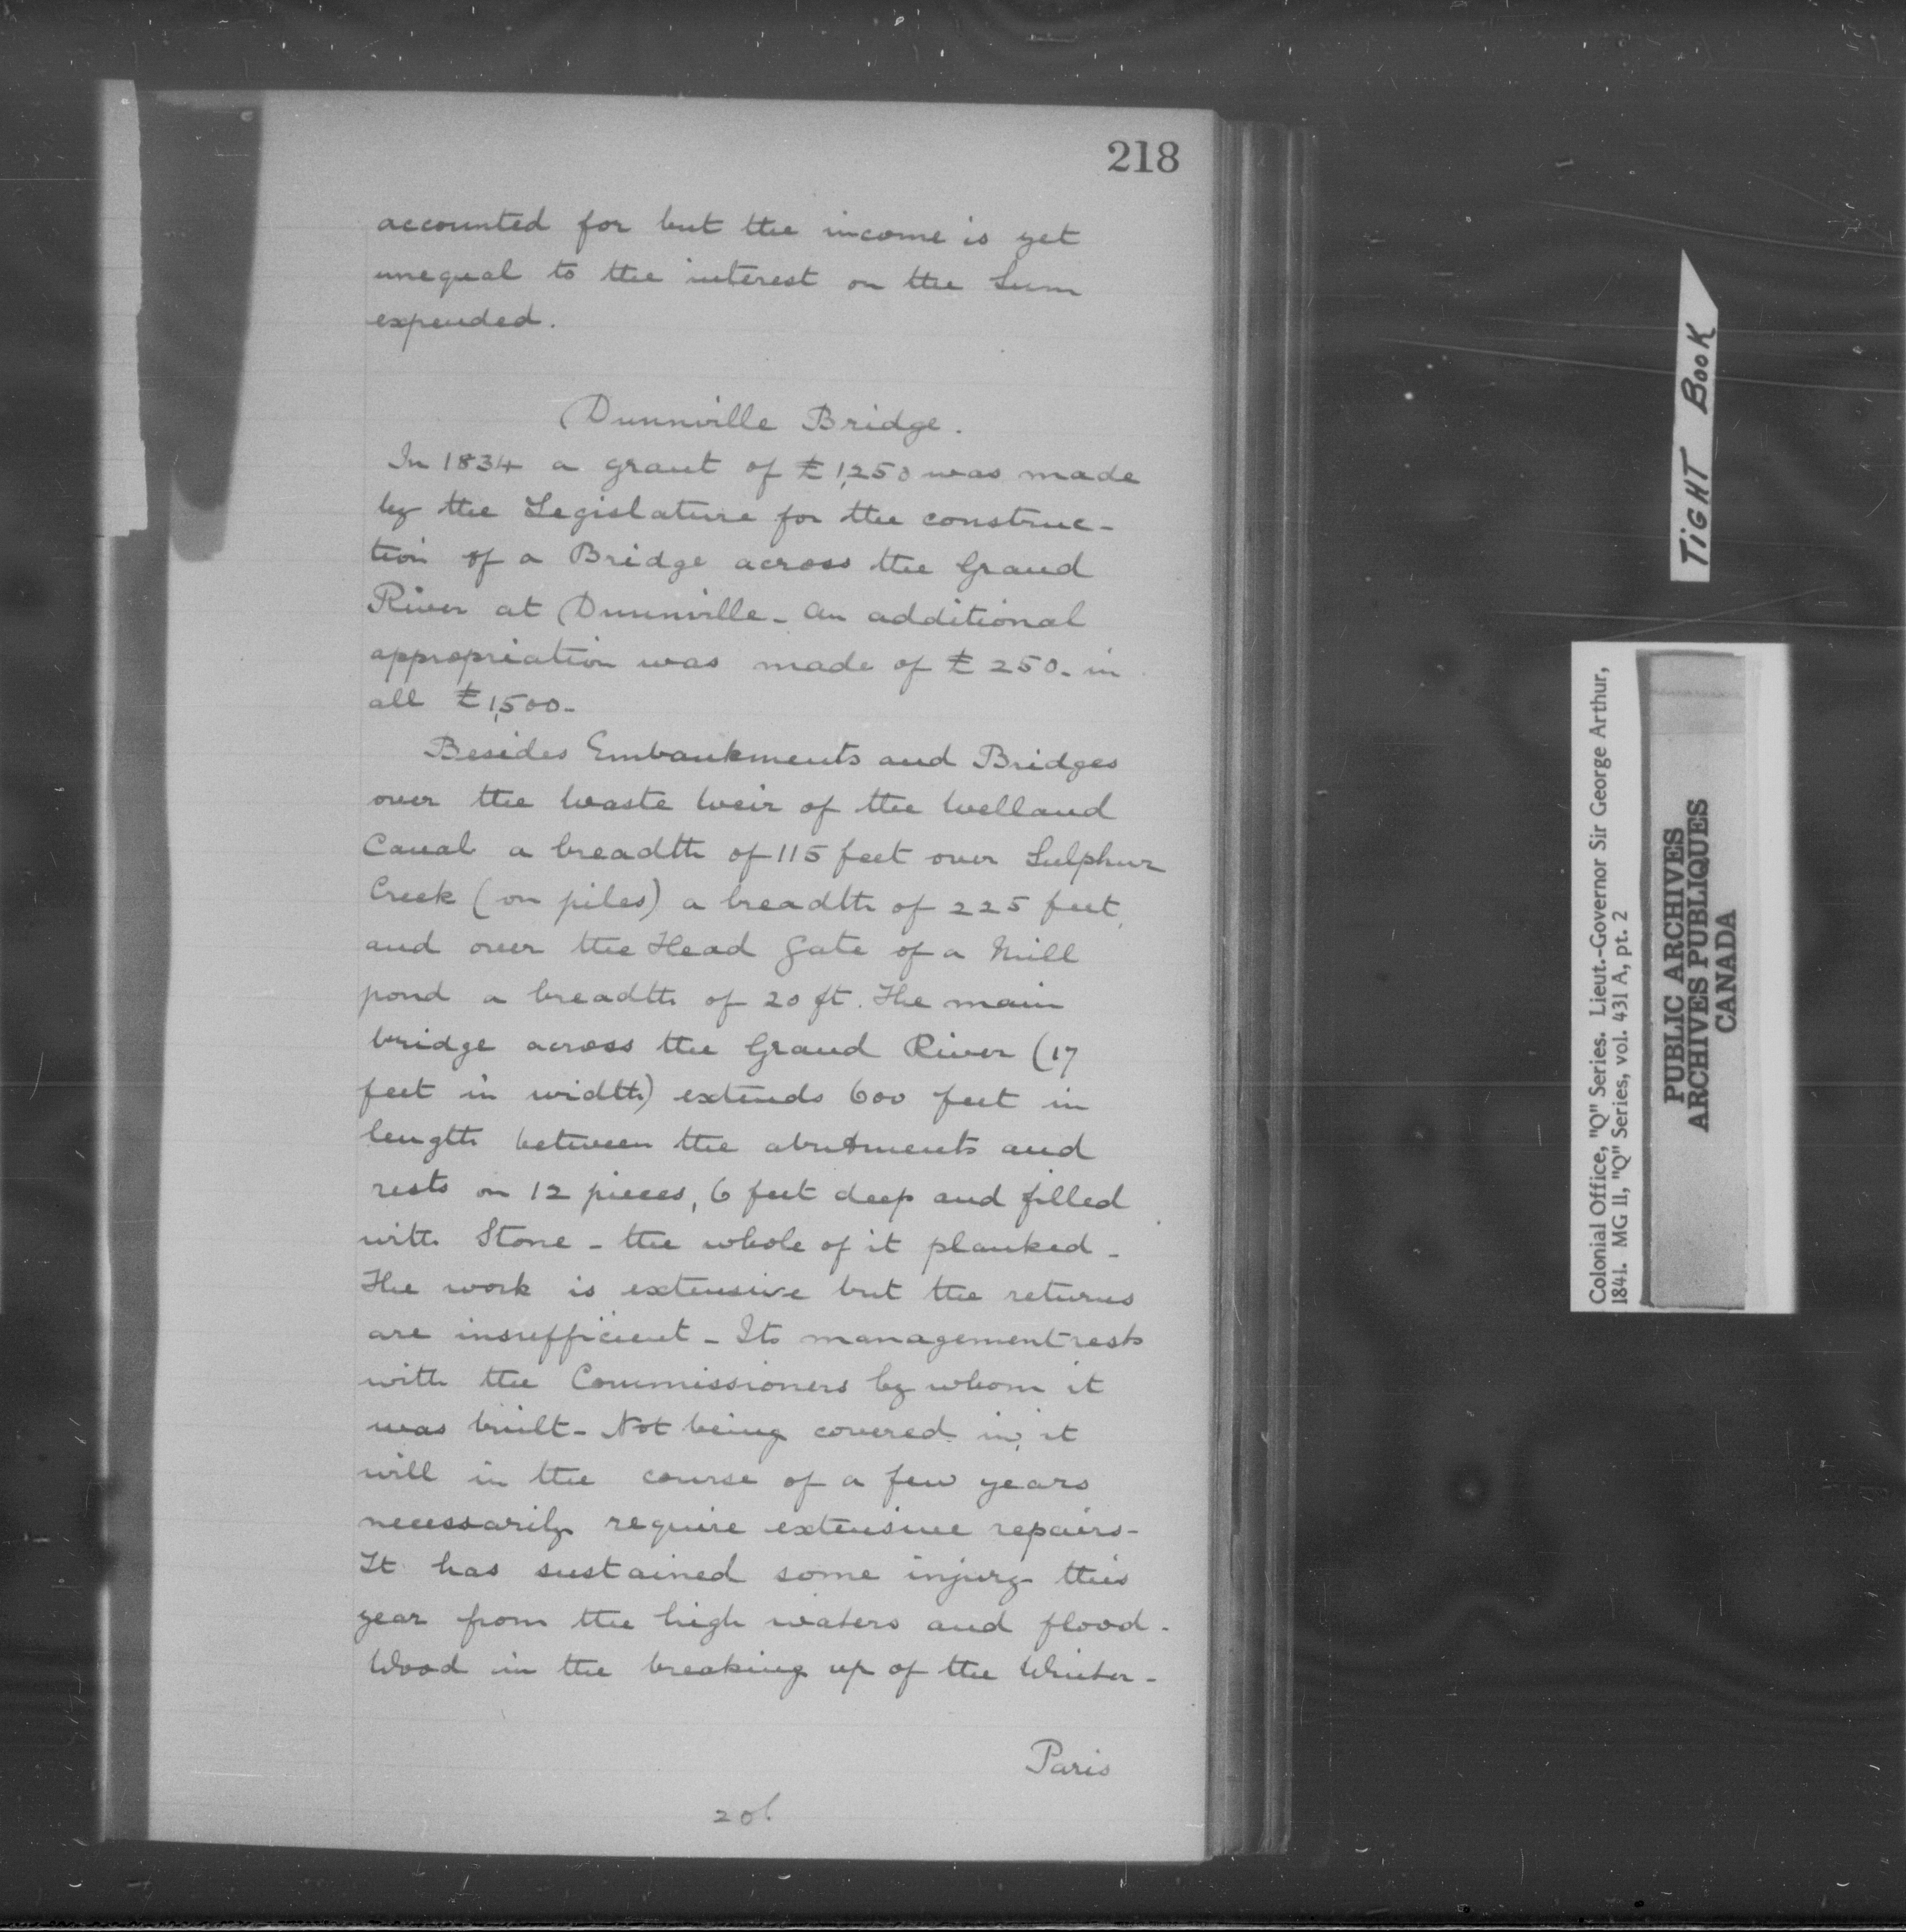 218
accounted for but the income is yet
unequal to the interest on the Sum
expended.
Dunnville Bridge.
In 1834 a grant of £1,250 was made
by the Legislature for the construc-
tion of a Bridge across the Grand
River at Dunnville - An additional
appropriation was made of £250 - in
all £1,500 -
Besides Embankments and Bridges
over the Waste Weir of the Welland
Canal a breadth of 115 feet over Sulphur
Creek (on piles) a breadth of 225 feet,
and over the Head Gate of a Mill
pond a breadth of 20 ft. The main
bridge across the Grand River (17
feet in width) extends 600 feet in
length between the abutments and
rests on 12 pieces, 6 feet deep and filled
with Stone - the whole of it planked -
The work is extensive but the returns
are insufficient - Its management rests
with the Commissioners by whom it
was built - Not being covered in, it
will in the course of a few years
necessarily require extensive repairs -
It has sustained some injury this
year from the high waters and flood -
Wood in the breaking up of the Winter -
Paris
TIGHT BOOK
Colonial Office, "Q" Series. Lieut.-Governor Sir George Arthur,
1841. MG 11, "Q" Series, vol. 431 A, pt. 2
PUBLIC ARCHIVES
ARCHIVES PUBLIQUES
CANADA